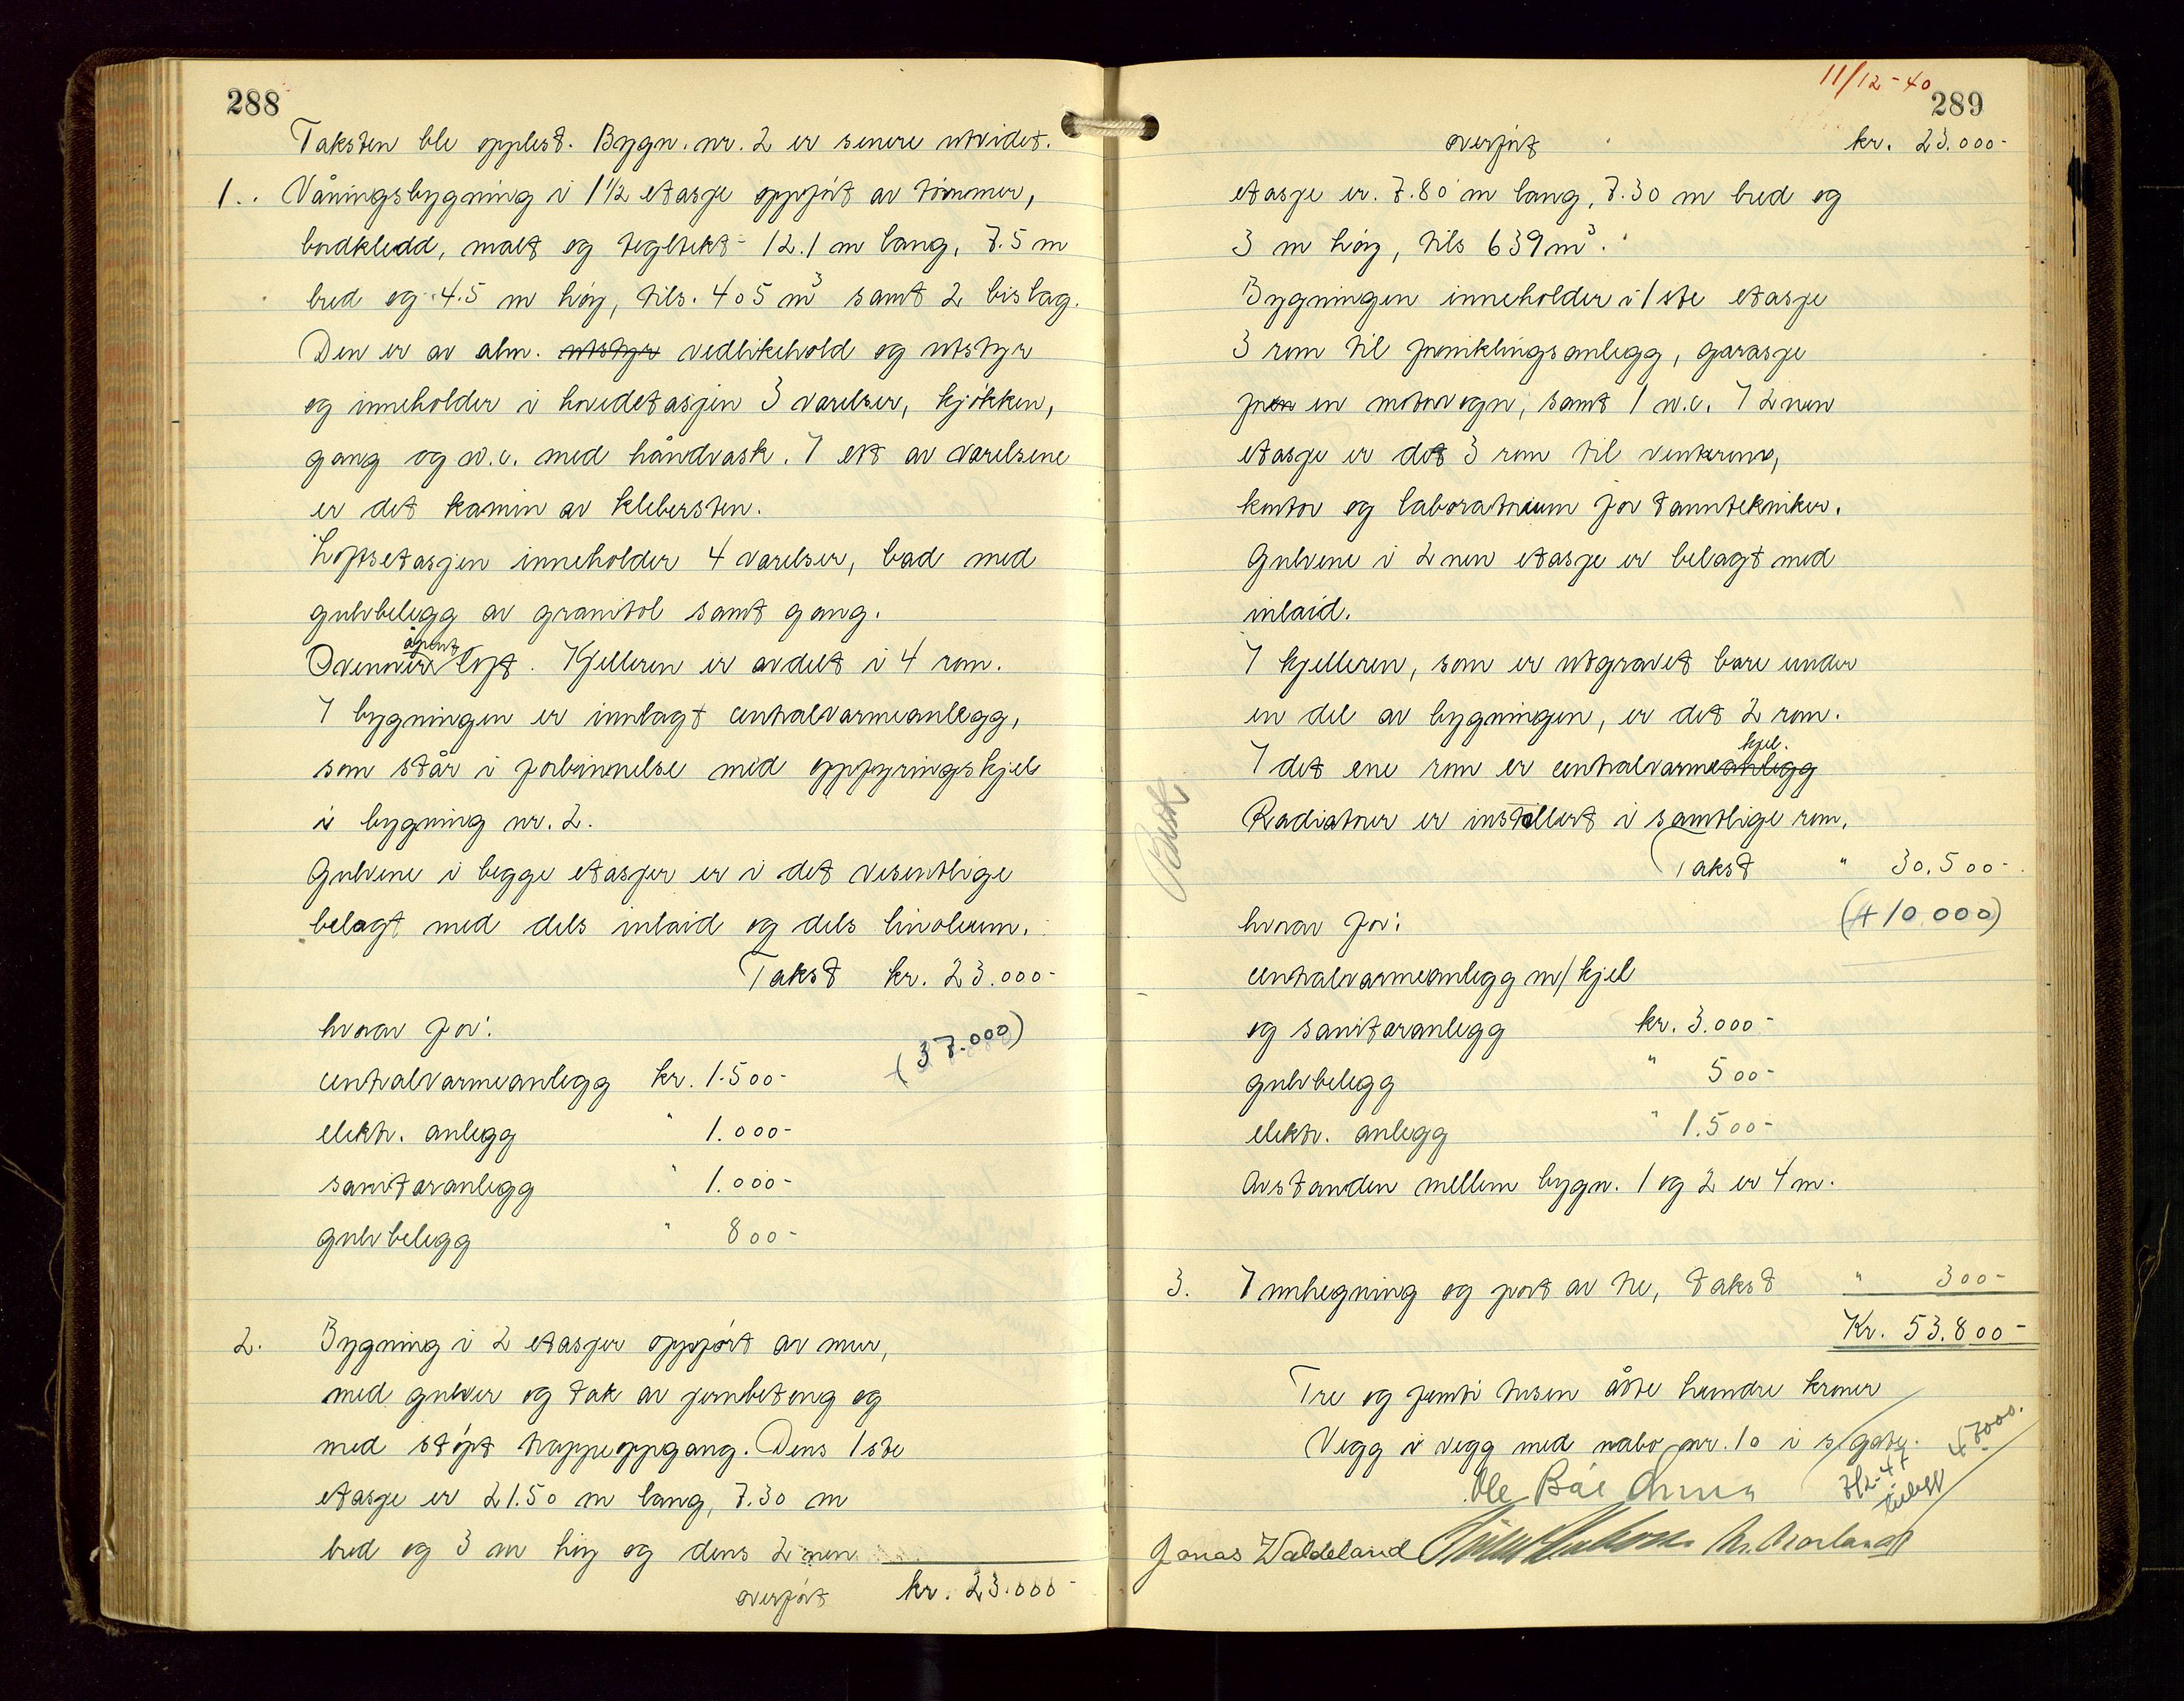 288
Taksten ble opplest. Bygn. nr. 2 er senere utvidet.
1. Våningsbygning i 1 1/2 etasje oppført av tømmer,
bordkledd, malt og tegltekt - 12.1 m lang, 7.5 m
bred og 4.5 m høy, tils. 405 m³ samt 2 bislag.
Den er av alm. utstyr vedlikehold og utstyr
og inneholder i hovedetasjen 3 værelser, kjøkken,
gang og w.c. med håndvask. I ett av værelsene
er det kamin av klebersten.
Loftsetasjen inneholder 4 værelser, bad med
gulvbelegg av granitol samt gang.
åpent
Ovenover loft. Kjelleren er avdelt i 4 rom.
I bygningen er innlagt centralvarmeanlegg,
som står i forbinnelse med oppfyringskjel
i bygning nr. 2.
Gulvene i begge etasjer er i det vesentlige
belagt med dels inlaid og dels linoleum.
Takst kr. 23.000-
hvorav for:
(37.000)
centralvarmeanlegg kr. 1.500-
elektr. anlegg " 1.000-
sanitæranlegg " 1.000-
gulvbelegg " 800-
2. Bygning i 2 etasjer oppført av mur,
med gulver og tak av jernbetong og
med støpt trappeoppgang. Dens 1ste
etasje er 21.50 m lang, 7.30 m
bred og 3 m høy og dens 2 nen
overført kr. 23.000-
11/12-40
289
overført kr. 23.000-
etasje er 7.80 m lang, 7.30 m bred og
3 m høy, tils 639 m³.
Bygningen inneholder i 1ste etasje
3 rom til forniklingsanlegg, garasje
for en motorvogn, samt 1 w.c. I 2nen
etasje er det 3 rom til venterom,
kontor og laboratorium for tanntekniker.
Gulvene i 2nen etasje er belagt med
inlaid.
I kjelleren, som er utgravet bare under
en del av bygningen, er det 2 rom.
kjel.
I det ene rom er centralvarmeanlegg
Radiatorer er installert i samtlige rom.
Takst " 30.500-
hvorav for: (+10.000)
centralvarmeanlegg m/kjel
og sanitæranlegg kr. 3.000-
gulvbelegg " 500-
elektr. anlegg " 1.500-
Avstanden mellem bygn. 1 og 2 er 4 m.
3. Innhegning og port av tre, takst " 300-
Kr. 53.800-
Tre og femti tusen åtte hundre kroner
Vegg i vegg med nabo nr. 10 i s/gate.
47000.
Ole Bæ
Jonas Waldeland